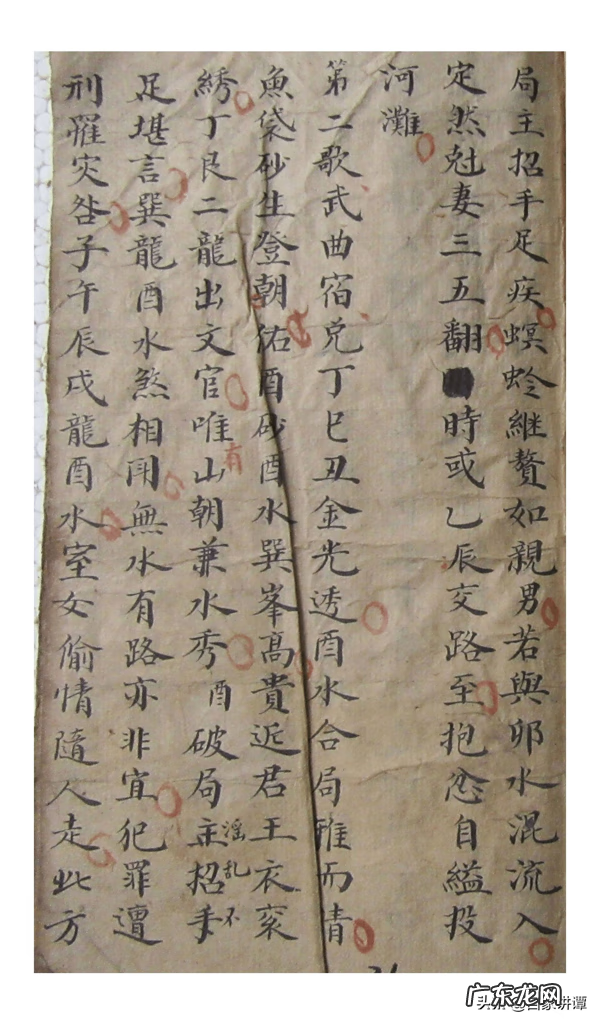 局主招手足疾螟蛉継贅如親男若與卯水混流入
定然尅妻三五翻時或乙辰交路至抱忿自縊投
河灘
第二歌武曲宿兑丁巳丑金光透酉水合局雅而清
魚袋砂生登朝佑酉砂酉水巽峯髙貴近君王衣衮
綉丁艮二龍出文官唯有山朝兼水秀酉破局主淫乱不招手
足堪言巽龍酉水煞相闭無水有路亦非宜犯罪遭
刑罹灾咎子午辰戌龍酉水室女偷情隨人走此方
广东龙网
头条 @百家讲谭